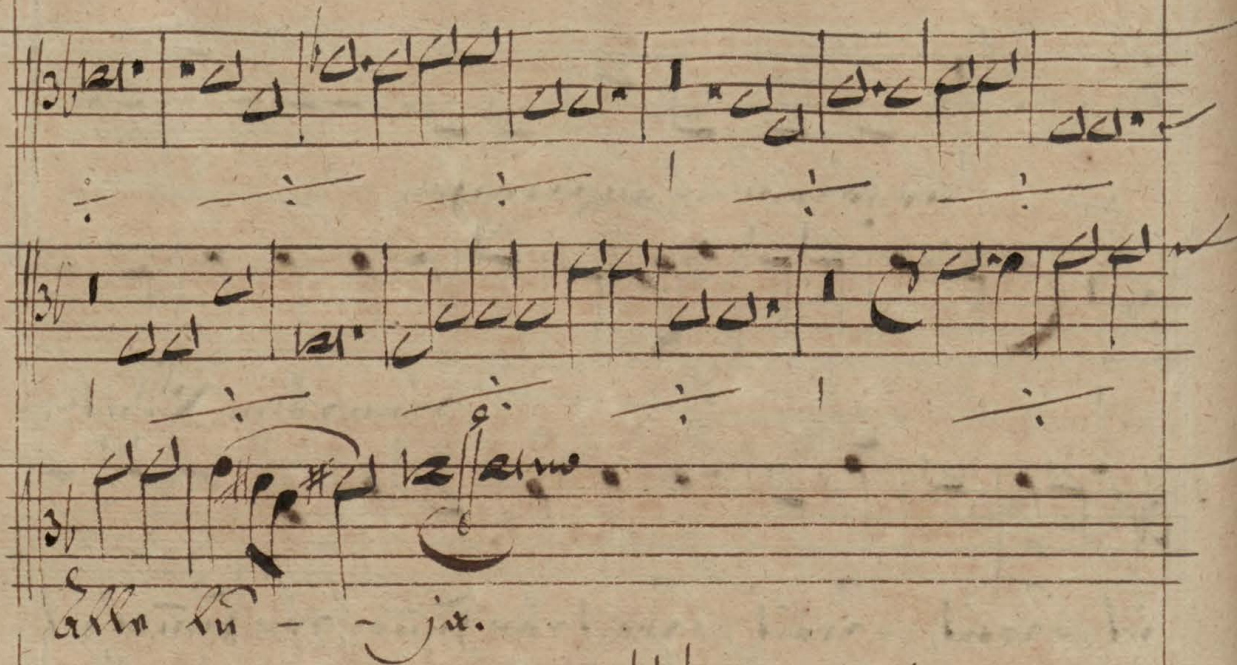 Alle lu - - ja.